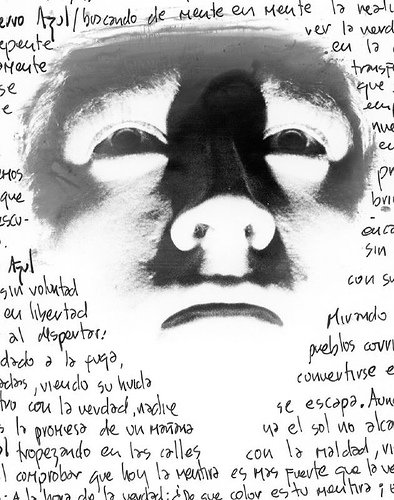 ervo Azul/buscando de mente en mente la reali
epente ver la verd
amente en la
se transf
e que
emp
nue
en
mos pr
que brin
escu- enco
. sin
Azul con su
sin voluntad
en libertad
al despertar: Mirando
dado a la fuga, pueblos corri
adas, viendo su huida convertirse e
tro con la verdad, nadie se escapa. Aun
s la promesa de un mañana ya el sol no alca
l tropezando en las calles con la maldad, vi
l comprobar que hoy la mentira es mas fuerte que la ve
: A la hora de la verdad: ¿De que color es tu mentira ¡